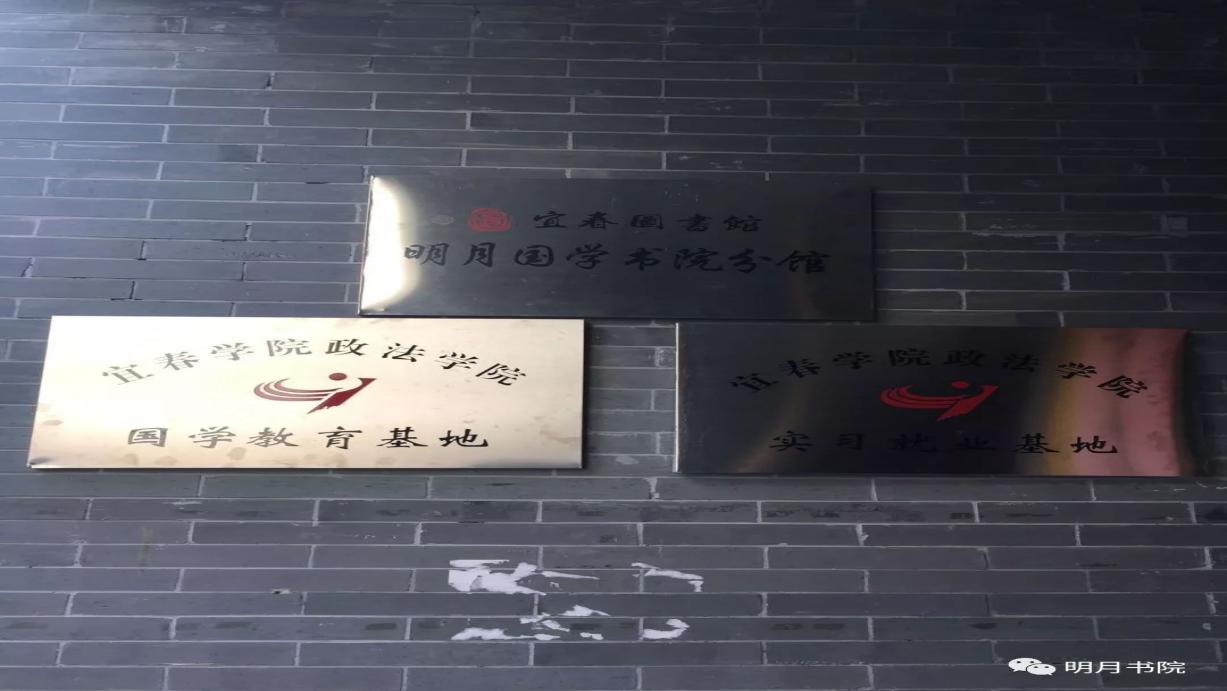 宜春圖書館
明月国学书院分馆
宜春学院政法学院
国学教育基地
宜春学院政法学院
实习就业基地
明月书院